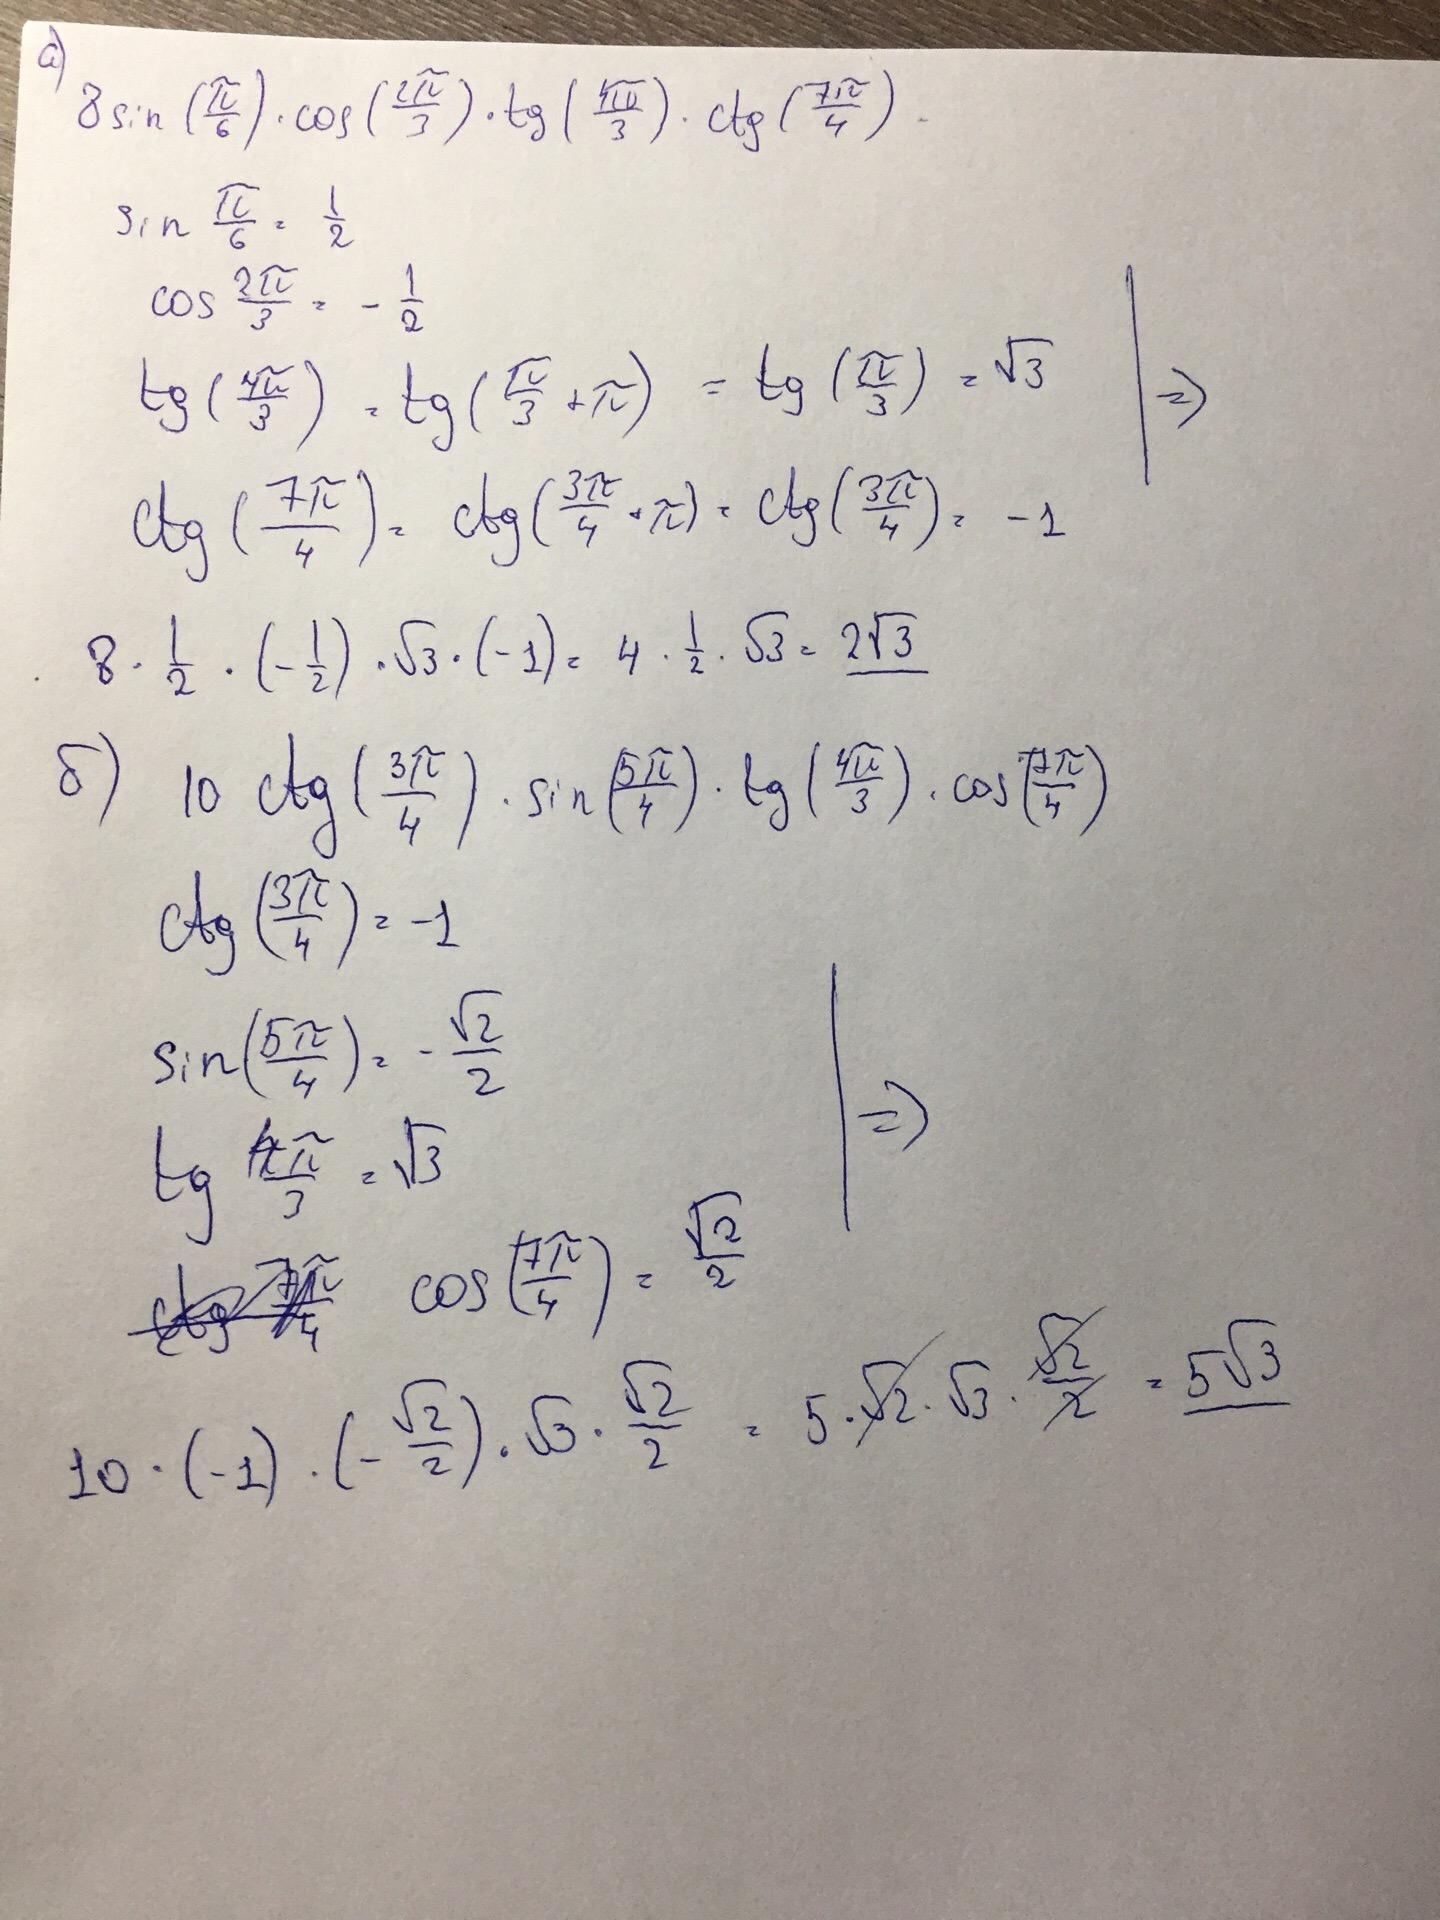 а)
8 sin (π/6) · cos (2π/3) · tg (4π/3) · ctg (7π/4)
sin π/6 = 1/2
cos 2π/3 = - 1/2
tg (4π/3) = tg (π/3 + π) = tg (π/3) = √3 | ⇒
ctg (7π/4) = ctg (3π/4 + π) = ctg (3π/4) = -1
8 · 1/2 · (-1/2) · √3 · (-1) = 4 · 1/2 · √3 = 2√3
б) 10 ctg (3π/4) · sin (5π/4) · tg (4π/3) · cos (7π/4)
ctg (3π/4) = -1
sin (5π/4) = - √2/2
tg 4π/3 = √3 | ⇒
ctg 7π/4 cos (7π/4) = √2/2
10 · (-1) · (-√2/2) · √3 · √2/2 = 5 · √2 · √3 · √2/2 = 5√3